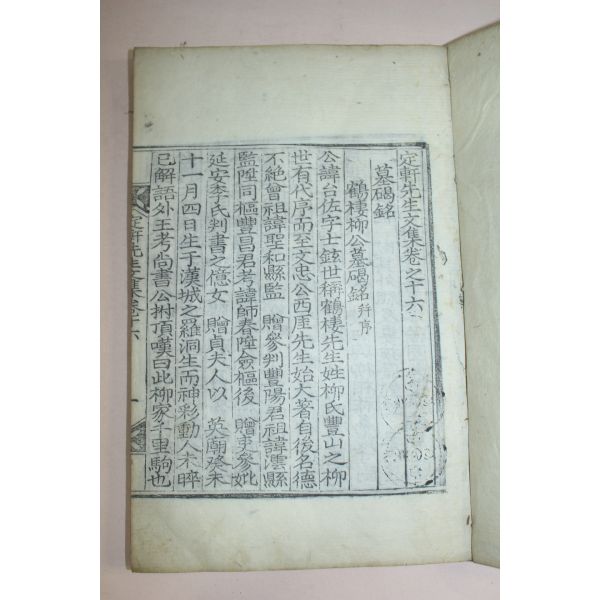 定軒先生文集卷之十六
墓碣銘
鶴棲柳公墓碣銘 幷序
公諱台佐字士鉉世稱鶴棲先生姓柳氏豐山之柳
世有代序而至文忠公西厓先生始大著自後名德
不絶曾祖諱聖和縣監 贈參判豐陽君祖諱澐縣
監陞同樞豐昌君考諱師春陞僉樞後 贈吏參妣
延安李氏判書之億女 贈貞夫人以 英廟癸未
十一月四日生于漢城之羅洞生而神彩動人未晬
已解語外王考尚書公拊頂嘆曰此柳家千里駒也
定軒先生文集卷十六